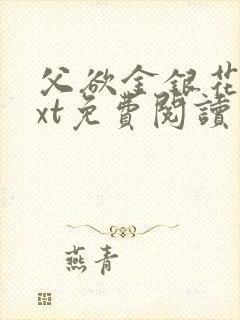 父欲金银花
xt免費閱讀
燕青